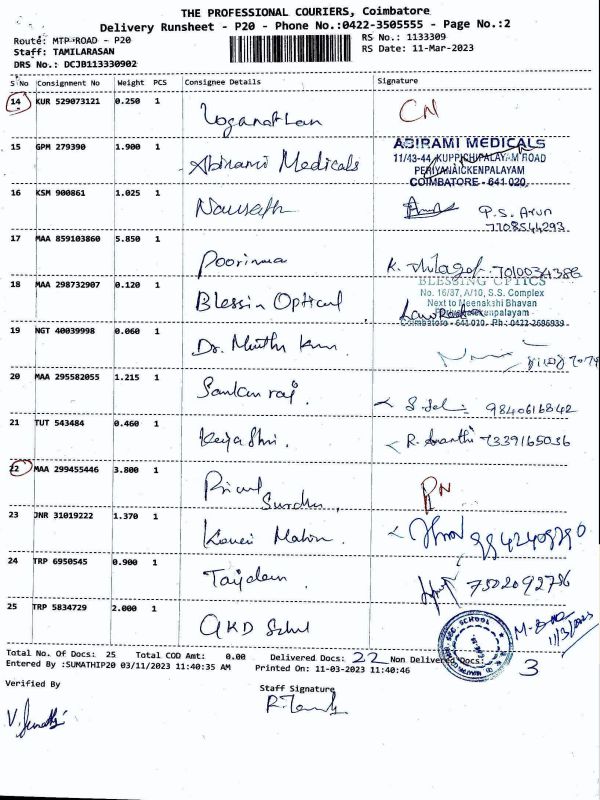 THE PROFESSIONAL COURIERS, Coimbatore
Delivery Runsheet - P20 - Phone No.:0422-3505555 - Page No.:2
Route: MTP ROAD - P20
RS No.: 1133309
Staff: TAMILARASAN
RS Date: 11-Mar-2023
DRS No.: DCJB113330902
S No Consignment No Weight PCS Consignee Details Signature
14 KUR 529073121 0.250 1 Loganathan CN
15 GPM 279390 1.900 1 Abirami Medicals
ABIRAMI MEDICALS
11/43-44, KUPPICHIPALAYAM ROAD
PERIYANAICKENPALAYAM
COIMBATORE - 641 020.
16 KSM 900861 1.025 1 Nousath P.S. Arun
7708544293.
17 MAA 859103860 5.850 1 Poornima K. 7010034386
18 MAA 298732907 0.120 1 Blessin Optical
BLESSING OPTICS
No. 16/37, A/10, S.S. Complex
Next to Meenakshi Bhavan
Coimbatore - 641 020. Ph : 0422-2686939
19 NGT 40039998 0.060 1 Dr. Muthu
20 MAA 295582055 1.215 1 Sankar raj. 9840616842
21 TUT 543484 0.460 1 R. 7339165036
22 MAA 299455446 3.800 1
23 JNR 31019222 1.370 1
24 TRP 6950545 0.900 1 7502092786
25 TRP 5834729 2.000 1 GKD School
11/3/2023
Total No. Of Docs: 25 Total COD Amt: 0.00 Delivered Docs: 22 Non Delivered Docs: 3
Entered By :SUMATHIP20 03/11/2023 11:40:35 AM Printed On: 11-03-2023 11:40:46
Verified By
Staff Signature